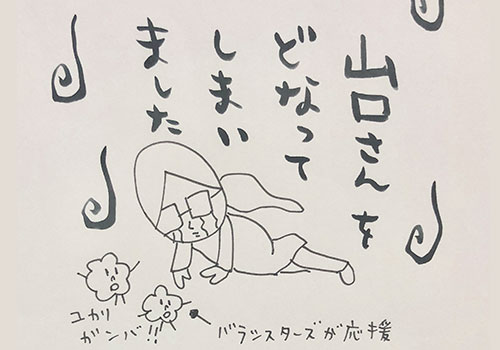 山口さんを
どなって
しまい
ました
ユカリ
ガンバ!!
バラシスターズが応援